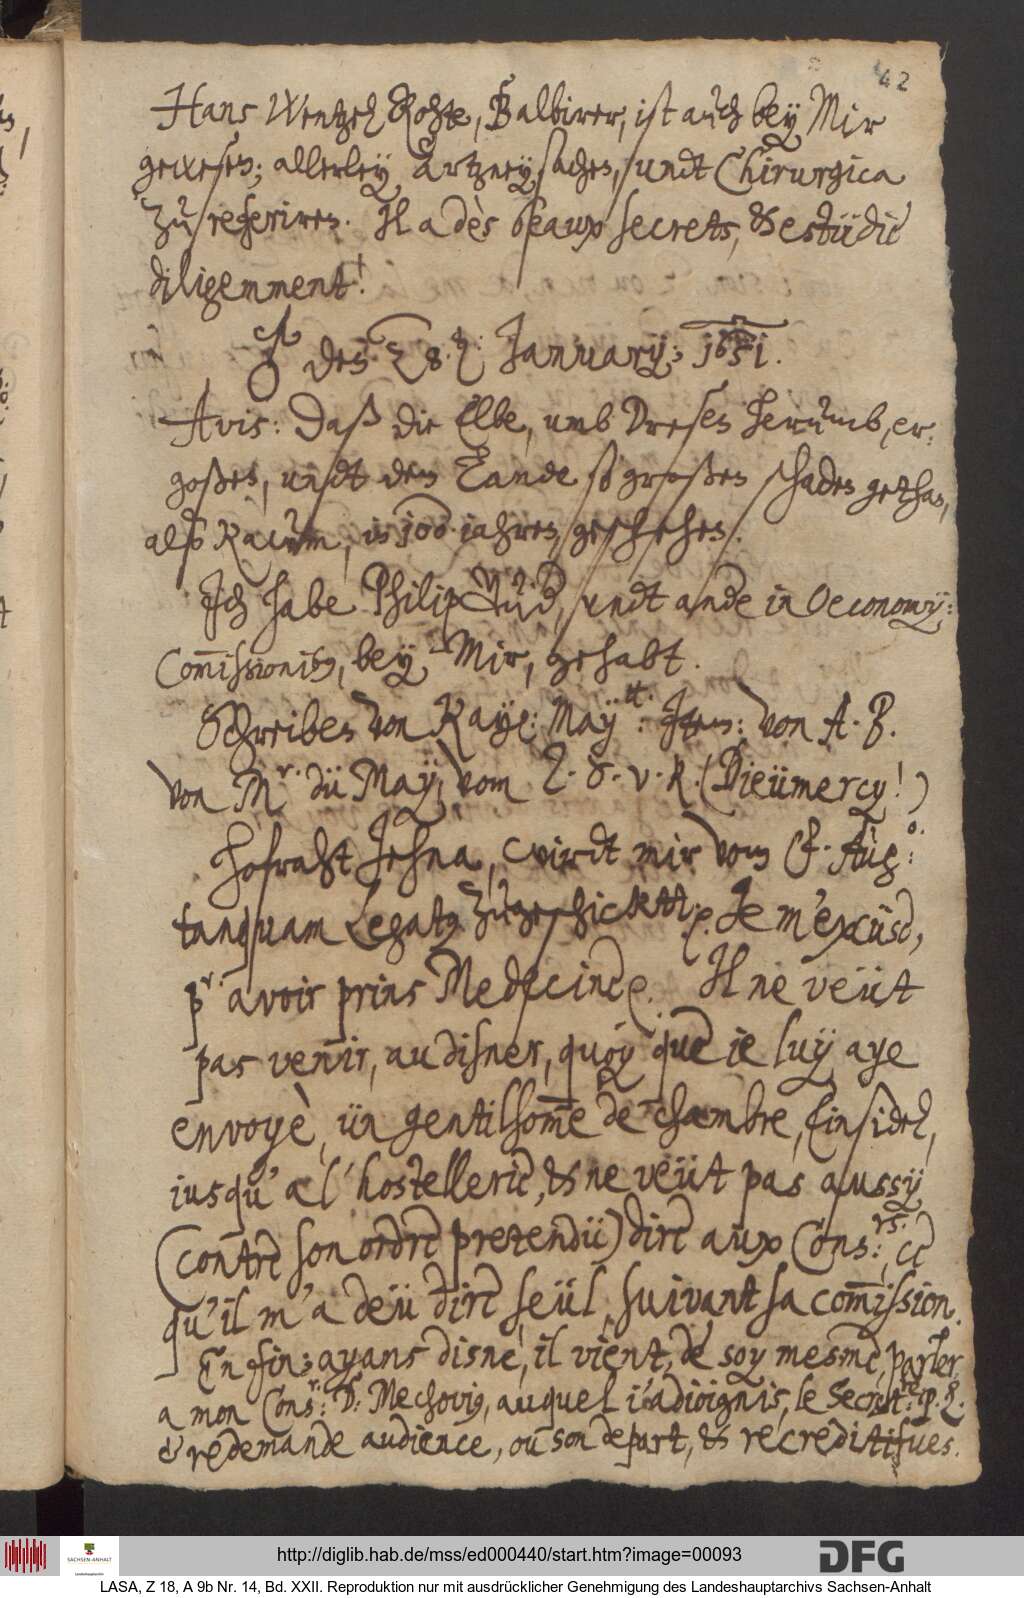 42
Hans Wentzel Rohte, Balbirer, ist auch bey Mir
gewesen; allerley Artzneysachen, undt Chirurgica
zu referiren. Il a dès beaux secrets, & estüdie
diligemment!
♂ den: 28. Januarij; 1651.
Avis: Daß die Elbe, umb Dresen herumb, er-
goßen, undt dem Lande so großen schaden gethan,
alß kaum, in 100 iahren, geschehen.
Ich habe Philip Güd, undt ande in Oeconomy:
Com̄issionibus, bey Mir, gehabt.
Schreiben von Kay: May:tt: Item: von A. B.
von Mr. dü Maÿ, vom L. F. v. R. (Dieümercy!)
Hofraht Jehna, wirdt mir vom F. Aug:o:
tanquam Legatus zugeschicktt. Je m'excüse,
pr. avoir prins Medecine. Il ne veüt
pas venir, au disner, quoy que ie luy aye
envoyè, ün gentilhom̄e de chambre, Einsidel,
iusqu' a l'hostellerie, & ne veüt pas aussy
(contre son ordre pretendü) dire aux Cons:rs, ce
qu'il m'a deü dire, seül, suivant sa com̄ission.
En fin; ayans disnè, il vient, de soy mesme, parler,
a mon Cons:r: D: Mechovius, auquel i'adioignis, le Secret:re P. L.
& redemande audience, ou son depart, & recreditifues.
http://diglib.hab.de/mss/ed000440/start.htm?image=00093
SACHSEN-ANHALT
Landeshauptarchiv
DFG
LASA, Z 18, A 9b Nr. 14, Bd. XXII. Reproduktion nur mit ausdrücklicher Genehmigung des Landeshauptarchivs Sachsen-Anhalt